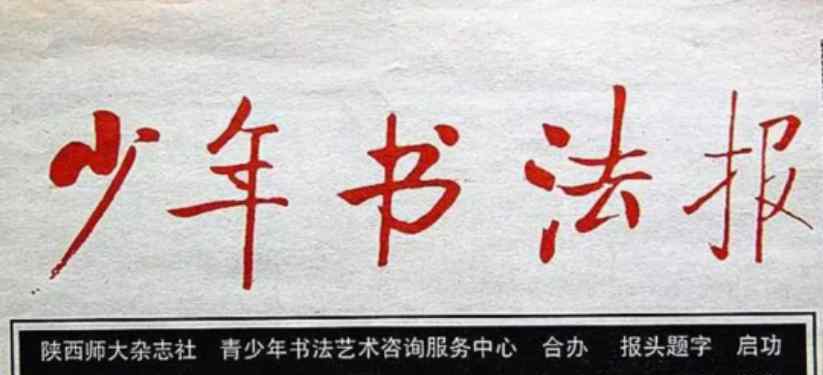 少年书法报
陕西师大杂志社 青少年书法艺术咨询服务中心 合办 报头题字 启功